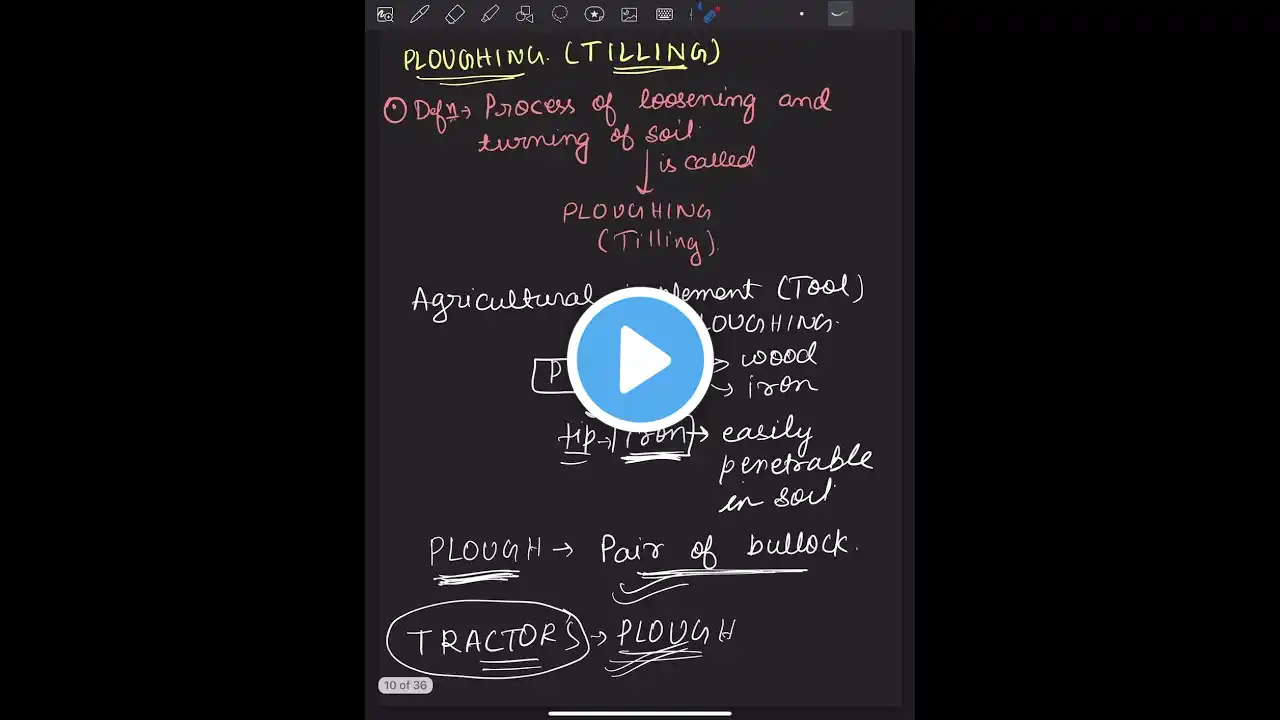 PLOUGHING. (TILLING)
Defn → Process of loosening and
turning of soil.
is called
PLOUGHING
(Tilling).
Agricultural implement (Tool)
PLOUGHING.
→ wood
→ iron
tip → iron → easily
penetrable
in soil
PLOUGH → Pair of bullock.
TRACTORS → PLOUGH
10 of 36